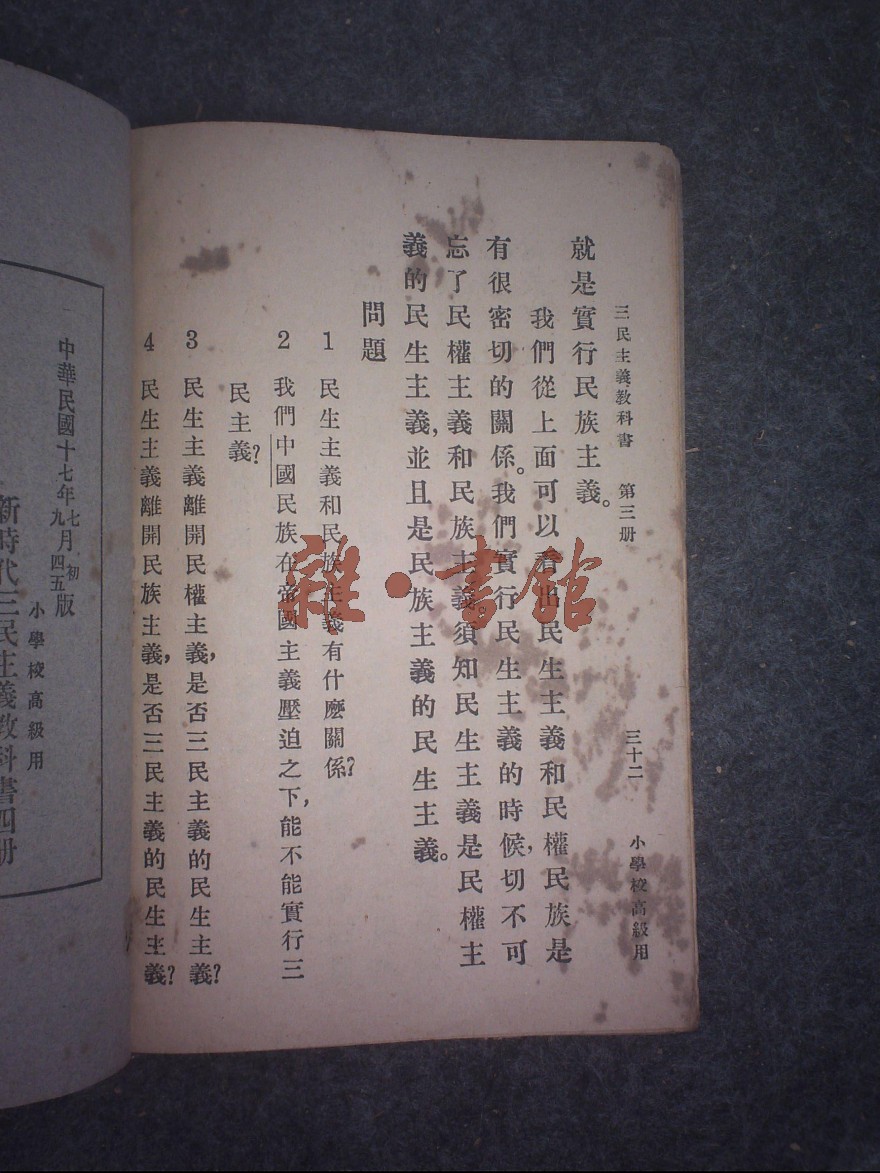 三民主義教科書 第三册 三十二 小學校高級用
就是實行民族主義。
我們從上面可以看出民生主義和民權民族是
有很密切的關係。我們實行民生主義的時候，切不可
忘了民權主義和民族主義。須知民生主義是民權主
義的民生主義，並且是民族主義的民生主義。
問題
1 民生主義和民族主義有什麽關係？
2 我們中國民族在帝國主義壓迫之下，能不能實行三
民主義？
3 民生主義離開民權主義，是否三民主義的民生主義？
4 民生主義離開民族主義，是否三民主義的民生主義？
中華民國十七年七月初版
九 四五
小學校高級用
新時代三民主義教科書四册
雜·書館